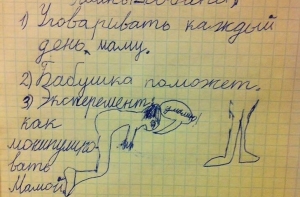 1) Уговаривать каждый
день маму.
2) Бабушка поможет.
3) Эксперемент
как
манипулиро
вать
Мамой